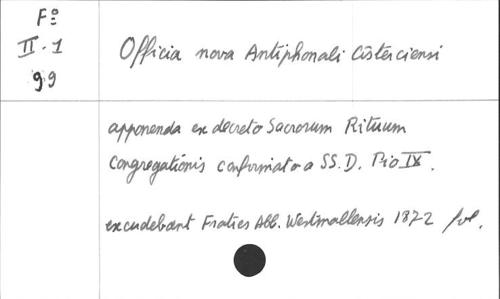 Fº
II.1
99
Officia nova Antiphonali Cisterciensi
apponenda ex decreto Sacrorum Rituum
Congregationis confirmato a SS. D. Pio IX.
excudebant Fratres Abb. Westmallensis 1872 fol.